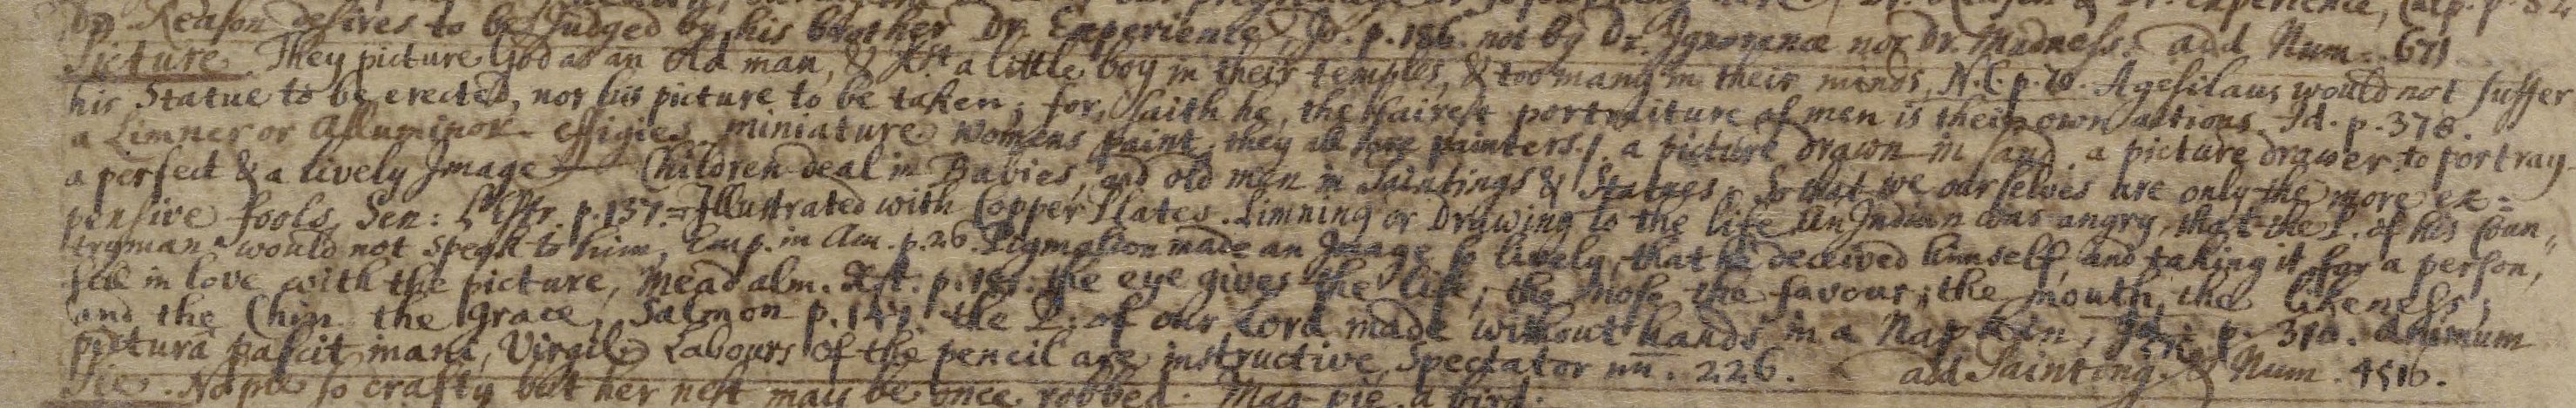 Dr. Reason desires to be judged by his brother Dr. Experience, Id. p. 186. not by Dr. Ignorance nor Dr. Madness. add Num. 671
Picture. They picture God as an old man, & Xst a little boy in their temples, & too many in their minds, N.C. p. 70. Agesilaus would not suffer
his Statue to be erected, nor his picture to be taken; for, saith he, the fairest portraiture of men is their own actions. Id. p. 378.
a Limner or Alluminor effigies miniature womens paint, they all are painters. a picture drawn in sand. a picture drawer. to portray
a perfect & a lively Image Children deal in Babies, and old men in Paintings & Statues; So that we ourselves are only the more ex=
pensive fools, Sen: L'Estr. p. 137. Illustrated with Copper Plates. Limning or Drawing to the life An Indian was angry, that the P. of his Coun"
tryman would not speak to him, in Am. p. 26. Pigmalion made an Image so lively, that he deceived himself, and taking it for a person,
fell in love with the picture, Mead alm. Xst. p. 181. the eye gives the life; the nose the favour; the mouth, the likeness;
and the Chin the Grace, Salmon p. 147. the P. of our Lord made without hands in a Napkin, p. 310. Animum
pictura pascit inani, Virgil. Labours of the pencil are instructive, Spectator nu. 226. add Painting. & Num. 4516.
Pie. No pie so crafty but her nest may be once robbed. Mag-pie, a bird.